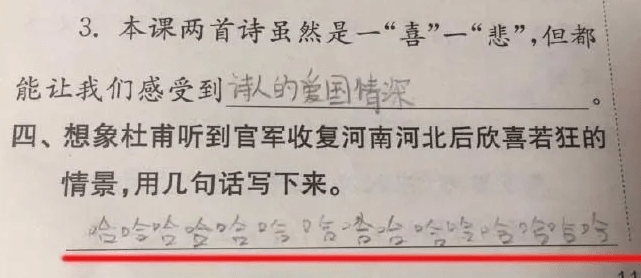 3. 本课两首诗虽然是一“喜”一“悲”,但都
能让我们感受到诗人的爱国情深。
四、想象杜甫听到官军收复河南河北后欣喜若狂的
情景,用几句话写下来。
哈哈哈哈哈哈哈哈哈哈哈哈哈哈哈哈